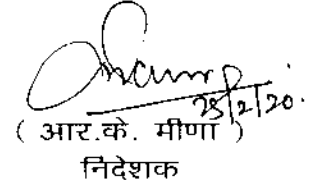 28/2/20.
( आर.के. मीणा )
निदेशक